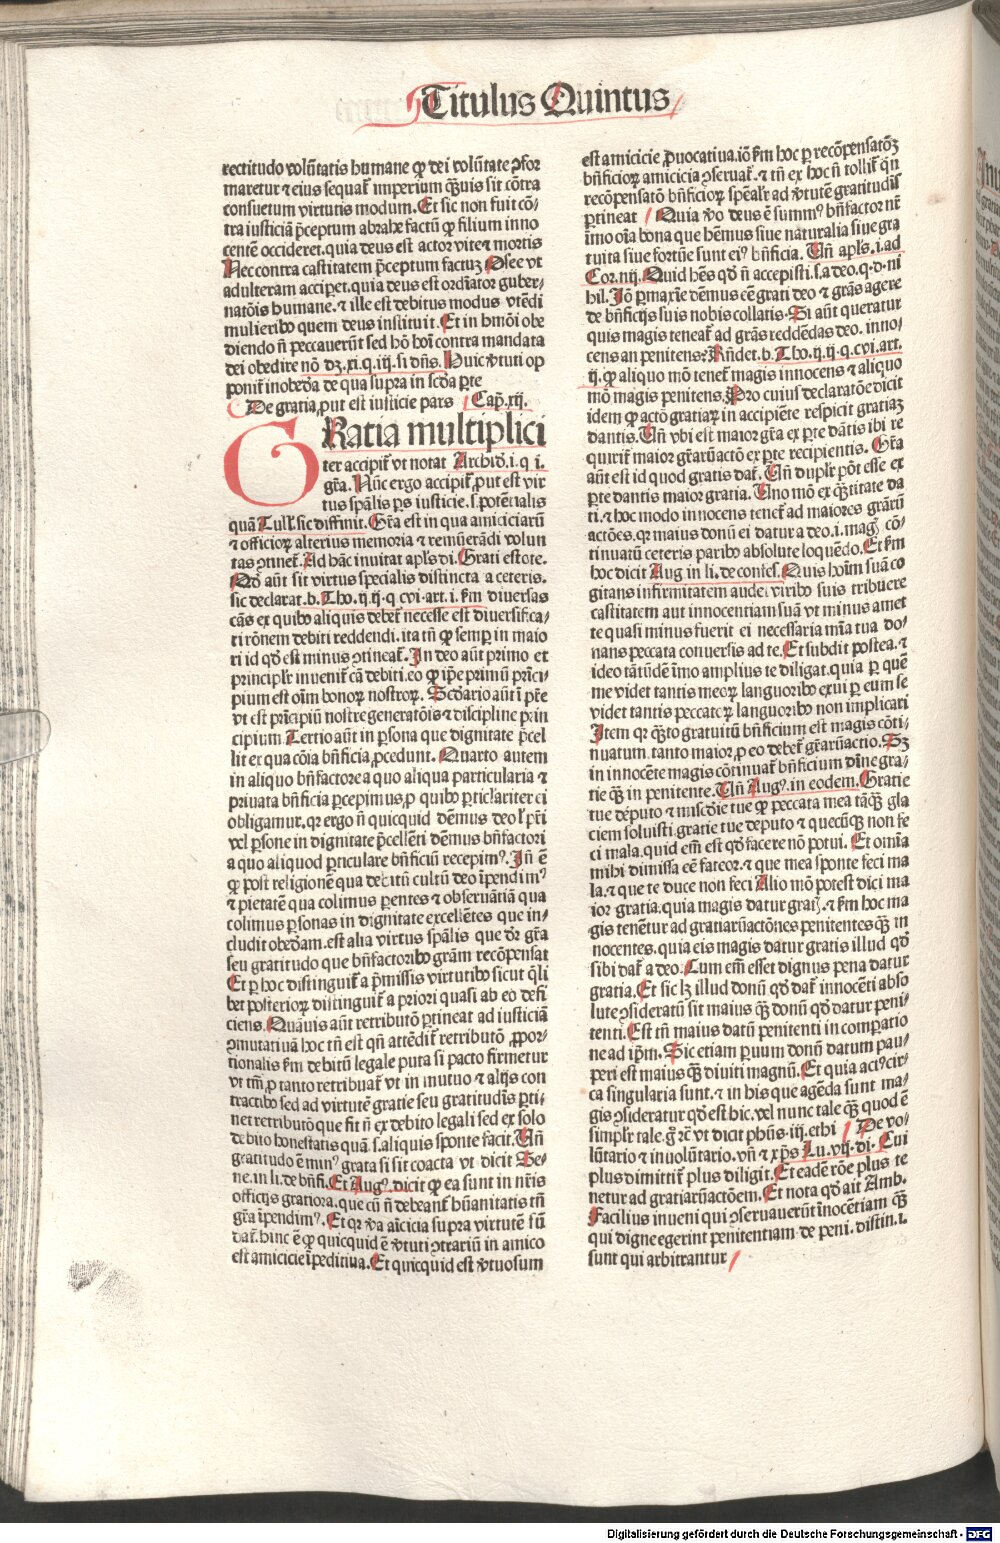 Titulus Quintus
rectitudo volũtatis humane ꝙ dei volũtate ꝯfor
maretur ⁊ eius sequat᷑ imperium qͣuis sit cõtra
consuetum virtutis modum. Et sic non fuit cõ
tra iusticiã p̃ceptum abrahe factũ ꝙ filium inno
centẽ occideret. quia deus est actor vite ⁊ mortis
Nec contra castitatem p̃ceptum factuꝫ Osee vt
adulteram acciperet. quia deus est ordĩator guber/
natõis humane. ⁊ ille est debitus modus vtẽdi
mulieribꝰ quem deus instituit. Et in hmõi obe
diendo ñ peccauerũt sed bõ hoĩ contra mandata
dei obedire nõ dꝫ. xi. q. iij. si dñs. Huic v̓tuti op
ponit᷑ inobeđa de qua supra in scđa ꝑte
De gratia ꝓut est iusticie pars Cap̃. xij.
GRatia multiplici
ter accipit᷑ vt notat Archiđ. i. q i.
gr̃a. Nũc ergo accipit᷑ ꝓut est vir
tus spãlis ꝑs iusticie. s. potẽcialis
quã Tull᷑. sic diffinit. Gr̃a est in qua amiciciarũ
⁊ officioꝝ alterius memoria ⁊ remũerãdi volun
tas ꝯtinet᷑. Ad hãc inuitat apl̃s di. Grati estote.
Qđ aũt sit virtus specialis distincta a ceteris.
sic declarat. b. Tho. ij. ij. q cvi. art. i. ẜm diuersas
cãs ex quibꝰ aliquis debet᷑ necesse est diuersifica/
ri rõnem debiti reddendi. ita tñ ꝙ semꝑ in maio
ri id qđ est minus ꝯtineat᷑. In deo aũt primo et
principlr̃ inuenit᷑ cã debiti. eo ꝙ ip̃e primũ prĩci/
pium est oĩm bonoꝝ nostroꝝ. Scđario aũt ĩ pr̃e
vt est prĩcipiũ nostre generatõis ⁊ discipline prin
cipium. Tertio aũt in ꝑsona que dignitate p̃cel
lit ex qua cõia bñficia ꝓcedunt. Quarto autem
in aliquo bñfactore a quo aliqua particularia ⁊
priuata bñficia ꝑcepimus, ꝓ quibꝰ ꝑticlariter ei
obligamur. qꝛ ergo ñ quicquid dẽmus deo l̓ pr̃i
vel ꝑsone in dignitate p̃cellẽti dẽmus bñfactori
a quo aliquod ꝑticulare bñficiũ recepimꝰ. Iñ ẽ
ꝙ post religionẽ qua debitũ cultũ deo ĩpendimꝰ
⁊ pietatẽ qua colimus ꝑentes ⁊ obseruãtiã qua
colimus ꝑsonas in dignitate excellẽtes que in/
cludit obeđam. est alia virtus spãlis que dr̃ gr̃a
seu gratitudo que bñfactoribꝰ grãm recõpensat
Et ꝑ hoc distinguit᷑ a p̃missis virtutibꝰ sicut qͥli
bet posterioꝝ distinguit᷑ a priori quasi ab eo defi
ciens. Quãuis aũt retributõ ꝑtineat ad iusticiã
ꝯmutatiuã hoc tñ est qñ attẽdit᷑ retributõ ꝓpor/
tionalis ẜm debitũ legale puta si pacto firmetur
vt tm̃ ꝓ tanto retribuat᷑ vt in mutuo ⁊ alijs con
tractibꝰ sed ad virtutẽ gratie seu gratitudĩs ꝑti/
net retributõ que fit ñ ex debito legali sed ex solo
debito honestatis quã. s. aliquis sponte facit. Uñ
gratitudo ẽ minꝰ grata si sit coacta vt dicit Se/
ne. in li. de bñfi. Et Augꝰ. dicit ꝙ ea sunt in nr̃is
officijs gratiora. que cũ ñ debeant᷑ hũanitatis tñ
gr̃a ĩpendimꝰ. Et qꝛ v̓a aĩcicia supra virtutẽ fũ
dat᷑. hinc ẽ ꝙ quicquid ẽ v̓tuti ꝯtrariũ in amico
est amicicie ĩpeditiua. Et quicquid est v̓tuosum
est amicicie ꝓuocatiua. iõ ẜm hoc ꝑ recõpensatõꝫ
bñficioꝝ amicicia ꝯseruat᷑. ⁊ tñ ex hoc ñ tollit᷑ qñ
recõpensatõ bñficioꝝ spẽalr̃ ad v̓tutẽ gratitudĩs
ꝑtineat Quia v̓o deus ẽ summꝰ bñfactor nr̃
ĩmo oĩa bona que hẽmus siue naturalia siue gra
tuita siue fortũe sunt eiꝰ bñficia. Uñ apl̃s. i. ad
Cor. iiij. Quid hẽs qđ ñ accepisti. s. a deo. q. d. ni
hil. Iõ ꝑmaxĩe dẽmus cẽ grati deo ⁊ grãs agere
de bñficijs suis nobis collatis. Si aũt queratur
quis magis teneat᷑ ad grãs reddẽdas deo. inno/
cens an penitens? Rñdet. b. Tho. ij. ij. q. cvi. art.
ij. ꝙ aliquo mõ tenet᷑ magis innocens ⁊ aliquo
mõ magis penitens. Pro cuius declaratõe dicit
idem ꝙ actõ gratiaꝝ in accipiẽte respicit gratiaꝫ
dantis. Uñ vbi est maior gr̃a ex ꝑte dãtis ibi re
quirit᷑ maior gr̃aruꝫactõ ex ꝑte recipientis. Gr̃a
aũt est id quod gratis dat᷑. Uñ duplr̃ põt esse ex
ꝑte dantis maior gratia. Uno mõ ex qͣtitate da
ti. ⁊ hoc modo innocens tenet᷑ ad maiores grãrũ
actões. qꝛ maius donũ ei datur a deo. i. mag̃. cõ/
tinuatũ ceteris paribꝰ absolute loquẽdo. Et ẜm
hoc dicit Aug. in li. de confes. Quis hoĩm suã co
gitans infirmitatem audet viribꝰ suis tribuere
castitatem aut innocentiam suã vt minus amet
te quasi minus fuerit ei necessaria mĩa tua do/
nans peccata conuersis ad te. Et subdit postea. ⁊
ideo tãtũdẽ ĩmo amplius te diligat. quia ꝑ quẽ
me videt tantis meoꝝ languoribꝰ exui ꝑ eum se
videt tantis peccatoꝝ languoribꝰ non implicari
Item qꝛ qͣto gratuitũ bñficium est magis cõti/
nuatum. tanto maior, ꝓ eo debet᷑ gr̃arũactio. Sꝫ
in innocẽte magis cõtinuat᷑ bñficium diũe gra/
tie qͣ in penitente. Uñ Augꝰ. in eodem. Gratie
tue deputo ⁊ miscđie tue ꝙ peccata mea tãqͣ gla
ciem soluisti. gratie tue deputo ⁊ quecũqꝫ non fe
ci mala. quid em̃ est qđ facere nõ potui. Et omĩa
mihi dimissa cẽ fateor. ⁊ que mea sponte feci ma
la. ⁊ que te duce non feci Alio mõ potest dici ma
ior gratia. quia magis datur gratꝭ. ⁊ ẜm hoc ma
gis tenẽtur ad gratiarũactõnes penitentes qͣ in
nocentes. quia eis magis datur gratis illud qđ
sibi dat᷑ a deo. Cum em̃ esset dignus pena datur
gratia. Et sic lꝫ illud donũ qđ dat᷑ innocẽti abso
lute ꝯsideratũ sit maius qͣ donũ qđ datur peni/
tenti. Est tñ maius datũ penitenti in comparatio
ne ad ip̃m. Sic etiam paruum donũ datum pau/
peri est maius qͣ diuiti magnũ. Et quia actꝰ cir/
ca singularia sunt. ⁊ in his que agẽda sunt ma/
gis ꝯsideratur qđ est hic. vel nunc tale qͣ quod ẽ
simplr̃ tale. g̊ rc̃ vt dicit phũs. iij. ethi De vo/
lũtario ⁊ inuolũtario. vñ ⁊ xp̃s Lu. vij. di. Cui
plus dimittit᷑ plus diligit. Et eadẽ rõe plus te
netur ad gratiarũactõem. Et nota qđ ait Amb.
Facilius inueni qui ꝯseruauerũt ĩnocẽtiam qͣ
qui digne egerint penitentiam de peni. distin. i.
sunt qui arbitrantur
Digitalisierung gefördert durch die Deutsche Forschungsgemeinschaft - DFG